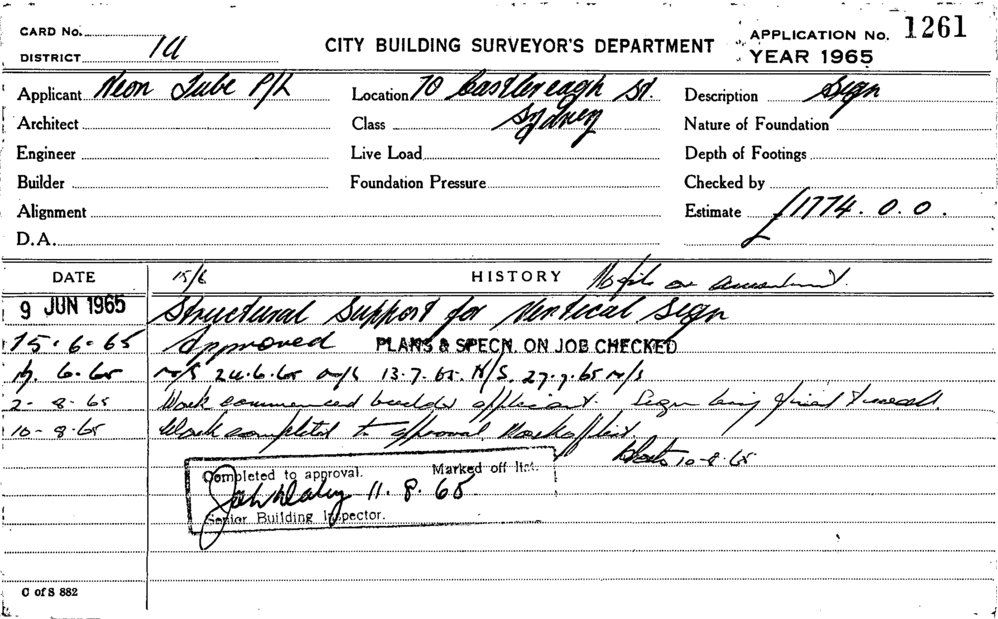 CARD No.
DISTRICT 1a
CITY BUILDING SURVEYOR'S DEPARTMENT
APPLICATION No. 1261
YEAR 1965
Applicant Neon Tube P/L
Location 70 Castlereagh St.
Sydney
Description Sign
Architect
Class
Nature of Foundation
Engineer
Live Load
Depth of Footings
Builder
Foundation Pressure
Checked by
Alignment
Estimate £1774.0.0.
D.A.
DATE
15/6
HISTORY
No file on amendment.
9 JUN 1965 Structural Support for Vertical Sign
15.6.65 Approved PLANS & SPECN. ON JOB CHECKED
6.65 N/S 24.6.65 N/S 13.7.65 N/S. 27.7.65 N/S
2-8-65 Work commenced builder applicant. Sign being
10-8-65 Work completed to approval. Mark off list.
10-8-65
Completed to approval. Marked off list.
11.8.65
Senior Building Inspector.
C of S 882